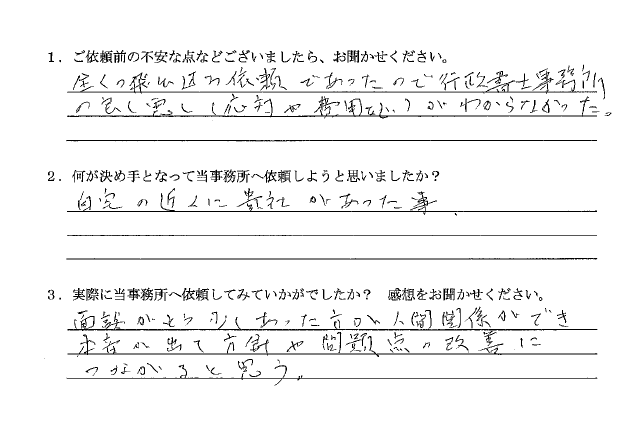 1．ご依頼前の不安な点などございましたら、お聞かせください。
全くの飛び込み依頼であったので行政書士事務所
の良し悪し（応対や費用など）がわからなかった。
2．何が決め手となって当事務所へ依頼しようと思いましたか？
自宅の近くに貴社があった事．
3．実際に当事務所へ依頼してみていかがでしたか？　感想をお聞かせください。
面談がもう少しあった方が人間関係ができ
が出て方針や問題点の改善に
つながると思う。